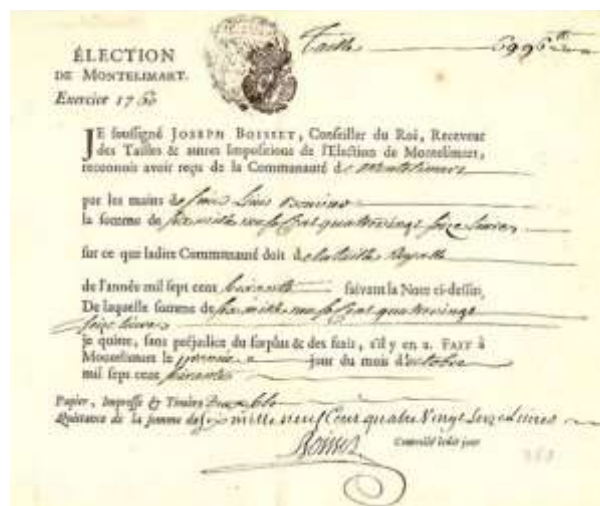 Taille 6996
ÉLECTION
DE MONTELIMART.
Exercice 176
JE soussigné JOSEPH BOISSET, Conseiller du Roi, Receveur
des Tailles & autres Impositions de l'Election de Montelimart,
reconnois avoir reçu de la Communauté de Montelimart
par les mains de Sieur Louis
la somme de six mille neuf Cent quatrevingt seize livres
sur ce que ladite Communauté doit de la taille Royalle
de l'année mil sept cent soixante suivant la Note ci-dessus,
De laquelle somme de six mille neuf Cent quatrevingt
seize livres
je quitte, sans préjudice du surplus & des frais, s'il y en a. FAIT à
Montelimart le premier jour du mois d'octobre
mil sept cent soixante
Papier, Impresse & Timbre
Quittance de la somme de six mille neuf Cent quatre Vingt Seize Livres
Boisset Controllé ledit jour